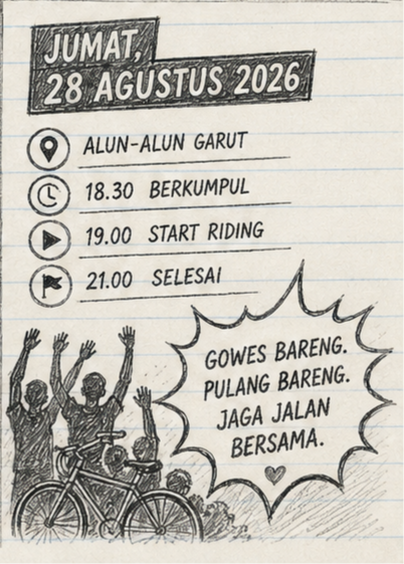 JUMAT,
28 AGUSTUS 2026
ALUN-ALUN GARUT
18.30 BERKUMPUL
19.00 START RIDING
21.00 SELESAI
GOWES BARENG.
PULANG BARENG.
JAGA JALAN
BERSAMA.